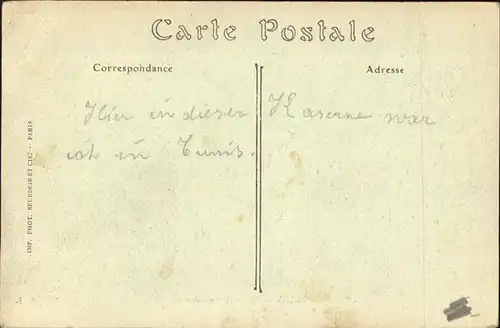 Carte Postale
Correspondance
Adresse
Hier in dieser Kaserne war
ich in Tunis.
IMP. PHOT. NEURDEIN ET CIE. - PARIS